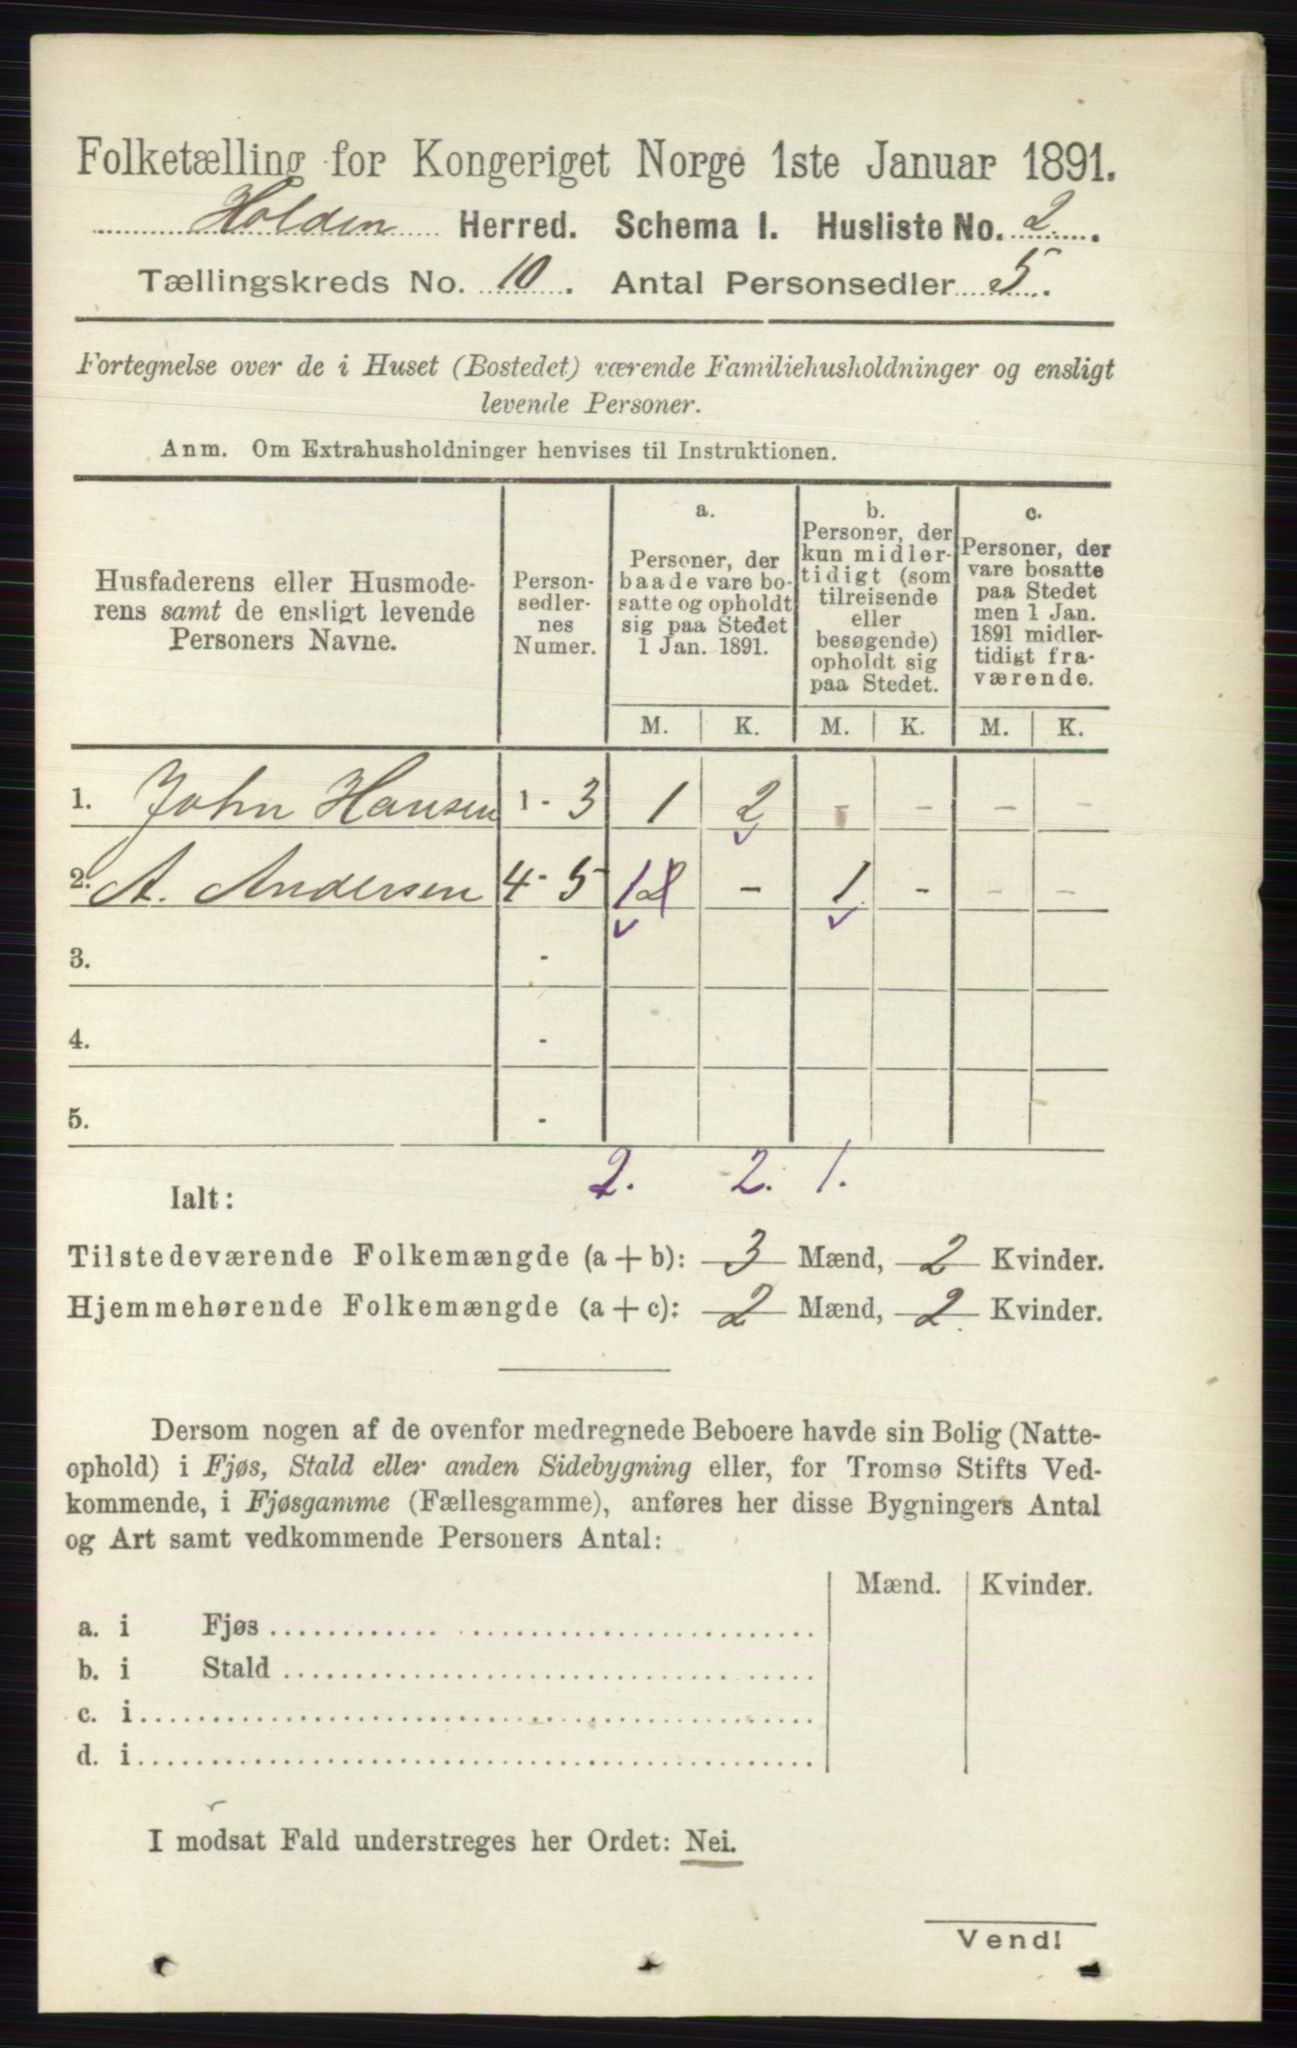 Folketælling for Kongeriget Norge 1ste Januar 1891.
Holden Herred. Schema I. Husliste No. 2.
Tællingskreds No. 10. Antal Personsedler 5.
Fortegnelse over de i Huset (Bostedet) værende Familiehusholdninger og ensligt
levende Personer.
Anm. Om Extrahusholdninger henvises til Instruktionen.
Husfaderens eller Husmode-
rens samt de ensligt levende
Personers Navne.
Person-
sedler-
nes
Numer.
a.
Personer, der
baade vare bo-
satte og opholdt
sig paa Stedet
1 Jan. 1891.
b.
Personer, der
kun midler-
tidigt (som
tilreisende
eller
besøgende)
opholdt sig
paa Stedet.
c.
Personer, der
vare bosatte
paa Stedet
men 1 Jan.
1891 midler-
tidigt fra-
værende.
M. K. M. K. M. K.
1. John Hansen 1 - 3 1 2 - - -
2. A. Andersen 4 - 5 1 2 - 1 - - -
3. -
4. -
5. -
2. 2. 1.
Ialt:
Tilstedeværende Folkemængde (a + b): 3 Mænd, 2 Kvinder.
Hjemmehørende Folkemængde (a + c): 2 Mænd, 2 Kvinder.
Dersom nogen af de ovenfor medregnede Beboere havde sin Bolig (Natte-
ophold) i Fjøs, Stald eller anden Sidebygning eller, for Tromsø Stifts Ved-
kommende, i Fjøsgamme (Fællesgamme), anføres her disse Bygningers Antal
og Art samt vedkommende Personers Antal:
Mænd. Kvinder.
a. i Fjøs
b. i Stald
c. i
d. i
I modsat Fald understreges her Ordet: Nei.
Vend!